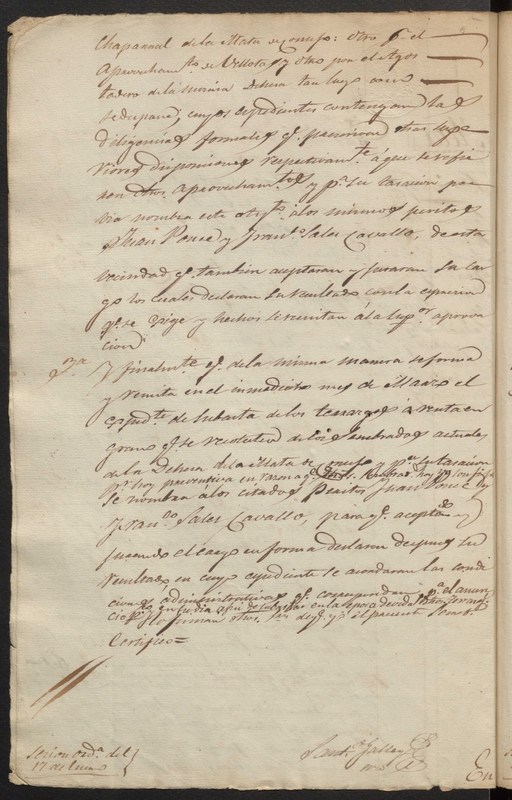 Chaparral de la Mata de Conejo: Otro p.r el
Aprovecham.to de Vellota y otro por el Agos
tadero de la misma Dehesa tan luego como
se depare, cuyos expedientes contengan las
diligencias formales q.e previenen otras supe
riores disposiciones respectivam.te á que se refie
ren otros Aprovecham.tos y p.a su tasacion pre
via nombra este a los mismos peritos
Juan Ponce y Fran.co Sales Cavallo, de esta
Vecindad q.e tambien aceptaran y juraran su car
go los cuales declaran su resultado con la
q.e se exige y hechos se remitan á la sup.or aprova
cion
7.a Y finalmente q.e de la misma manera se forme
y remita en el inmediato mes de Marzo el
exped.te de Subasta de los terrages á renta en
grano q.e se de los sembrados actuales
de la Dehesa de la Mata de Conejo y p.a su tasacion
p.r hoy
se nombra a los citados Peritos Juan Ponce y
Fran.co Sales Cavallo, para q.e aceptando y
jurando el cargo en forma declaren despues su
resultado, en cuyo expediente se acordaran las condi
ciones administrativas q.e correspondan p.a el anun
cio
y el presente Secret.o
Certifico=
Santi.o Gallego
Sesion ord.a del
17 de Enero
En